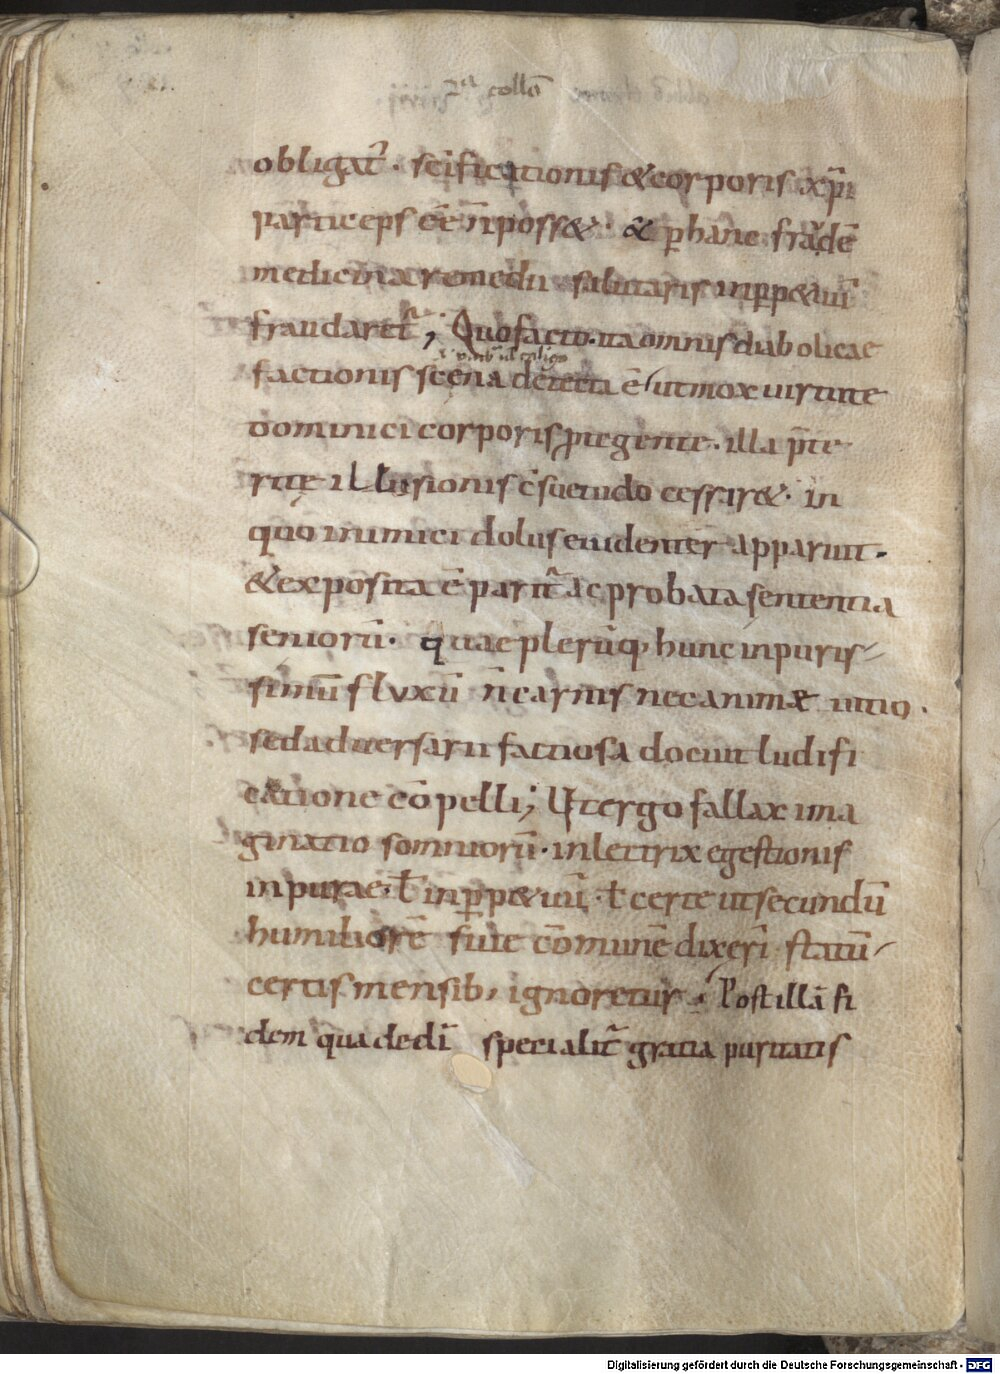 2ª collō
obligat̄ · sc̄ificationis & corporis xp̄i
particeps eē n̄ poss& · & p̱ hanc frāde
medicinae remedii salutaris inp̱p&uū
fraudaret ; Quo facto · ita omnis diabolicae
factionis scęna detecta ē ut mox uirtute
dominici corporis ꝓtegente · illa p̄te
ritę illusionis c̄suetudo cessar& · in
quo inimici dolus euidenter apparuit ·
& exposita ē parit̄ ac probata sententia
seniorū · quae plerūq, hunc inpuris
simū fluxū n̄ carnis nec animae uitio ·
sed aduersarii factiosa docuit ludifi
catione cōpelli ; Ut ergo fallax ima
ginatio somniorū · inlectrix egestionis
inpurae · ł inp̱p&uū · ł certe ut secundū
humiliorē siue cōmunē dixerī statū
certis mensib, ignoretur · Post illā fi
dem qua dedī specialit̄ gratia puritatis
Digitalisierung gefördert durch die Deutsche Forschungsgemeinschaft - DFG